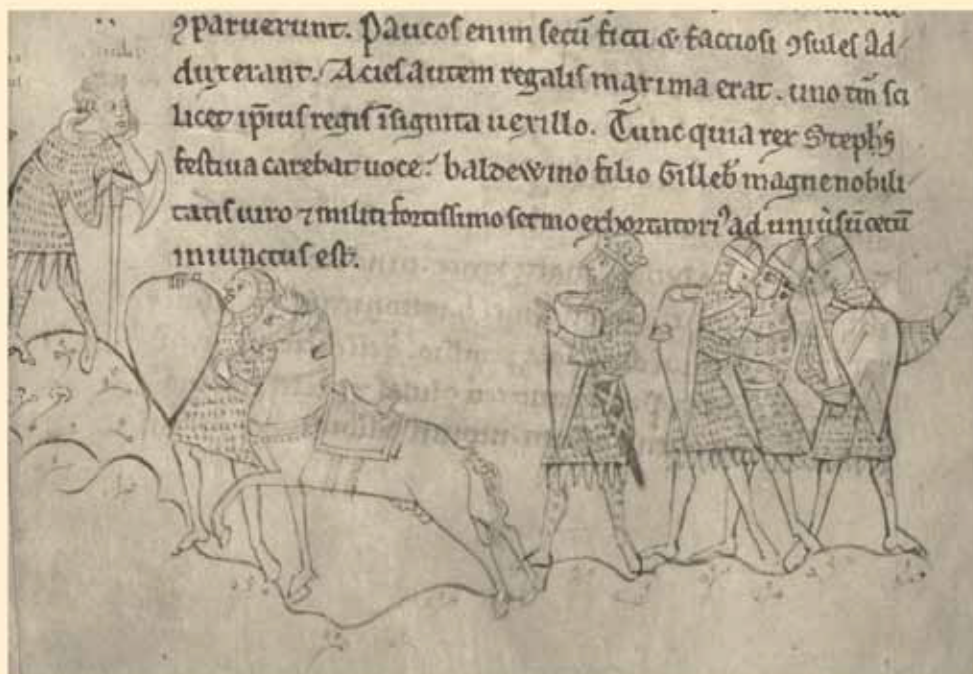 ꝯparuerunt. Paucos enim secū ficti & factiosi ꝯsules ad/
duxerant. Acies autem regalis maxima erat. uno tm̄ sci
licet ip̄ius regis īsignita uexillo. Tunc quia rex Stephꝰ
festiua carebat uoce: baldewino filio Gilleb̄ magne nobili
tatis uiro ⁊ militi fortissimo sermo exhortatoriꝰ ad
iniunctus est.